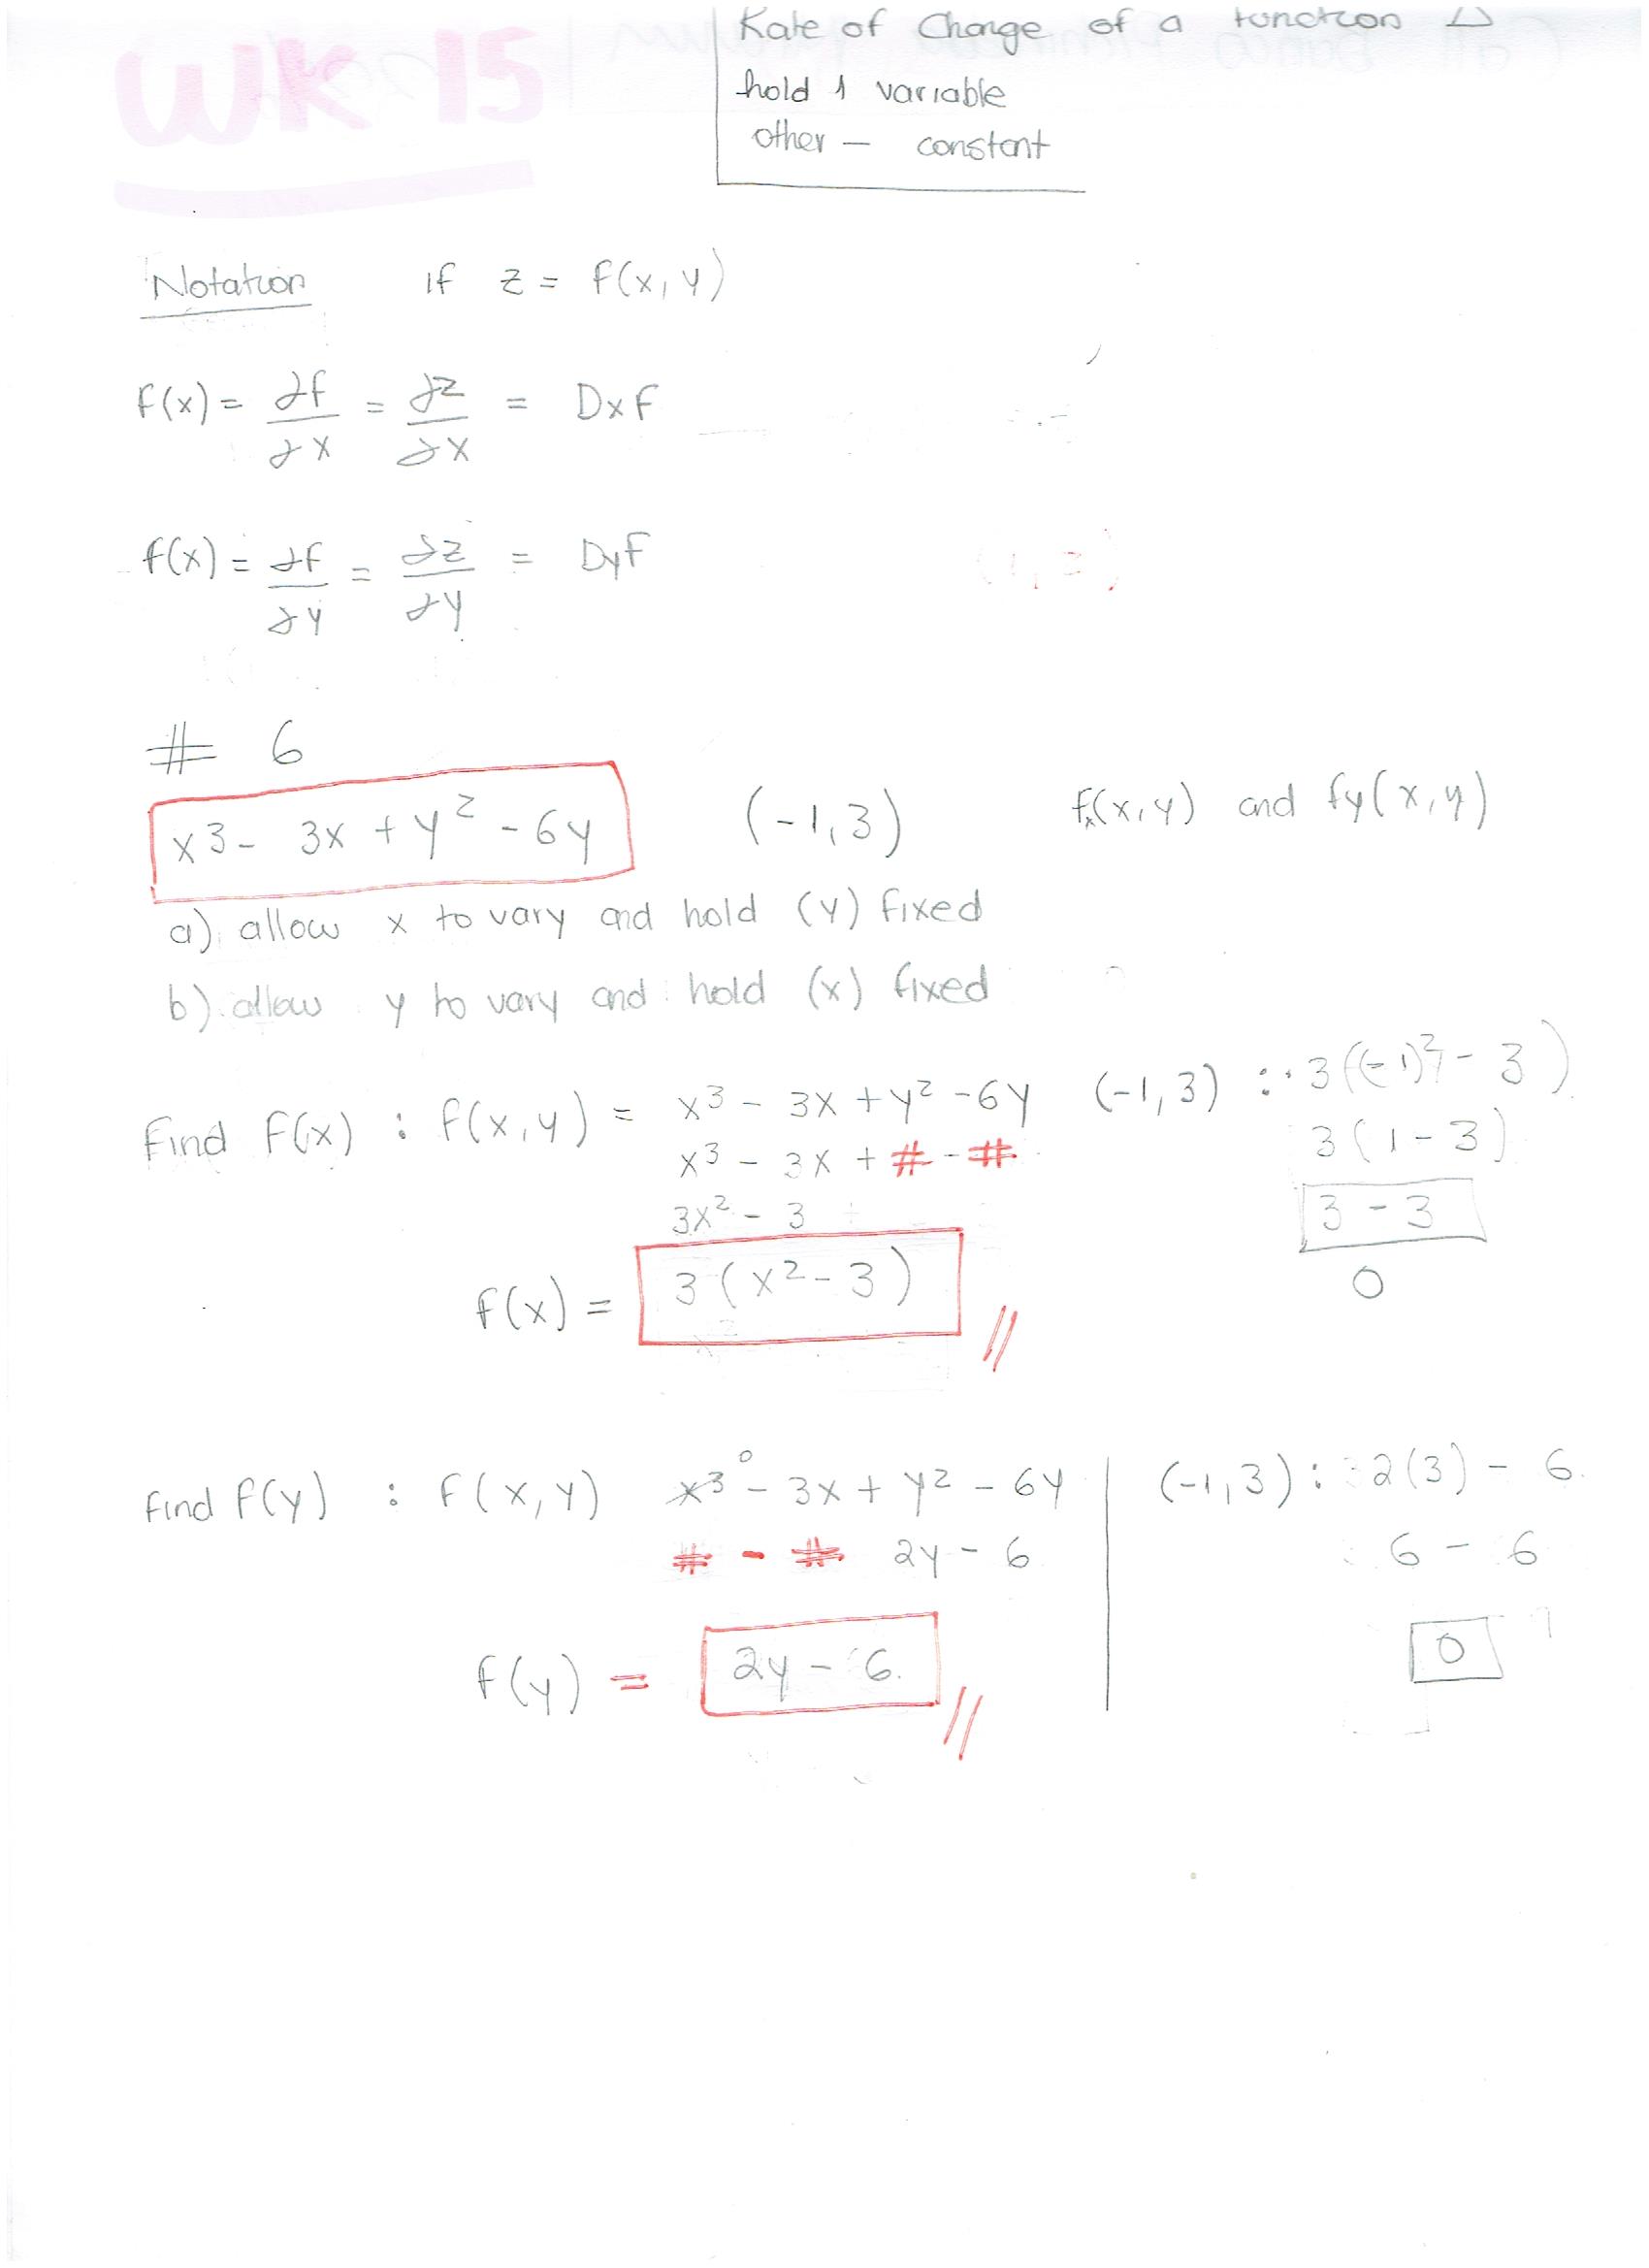 WK 15
Rate of Change of a function △
hold 1 variable
other — constant
Notation if z = f(x, y)
f(x) = ∂f/∂x = ∂z/∂x = DxF
f(x) = ∂f/∂y = ∂z/∂y = DyF
# 6
x3 - 3x + y² - 6y (-1, 3) fx(x, y) and fy(x, y)
a) allow x to vary and hold (y) fixed
b) allow y to vary and hold (x) fixed
Find F(x) : f(x, y) = x³ - 3x + y² - 6y (-1, 3) : 3((-1)² - 3)
x³ - 3x + # - # 3(1 - 3)
3x² - 3 3 - 3
f(x) = 3(x² - 3) 0
Find f(y) : f(x, y) x³ - 3x + y² - 6y (-1, 3) : 2(3) - 6
# - # 2y - 6 6 - 6
f(y) = 2y - 6 0